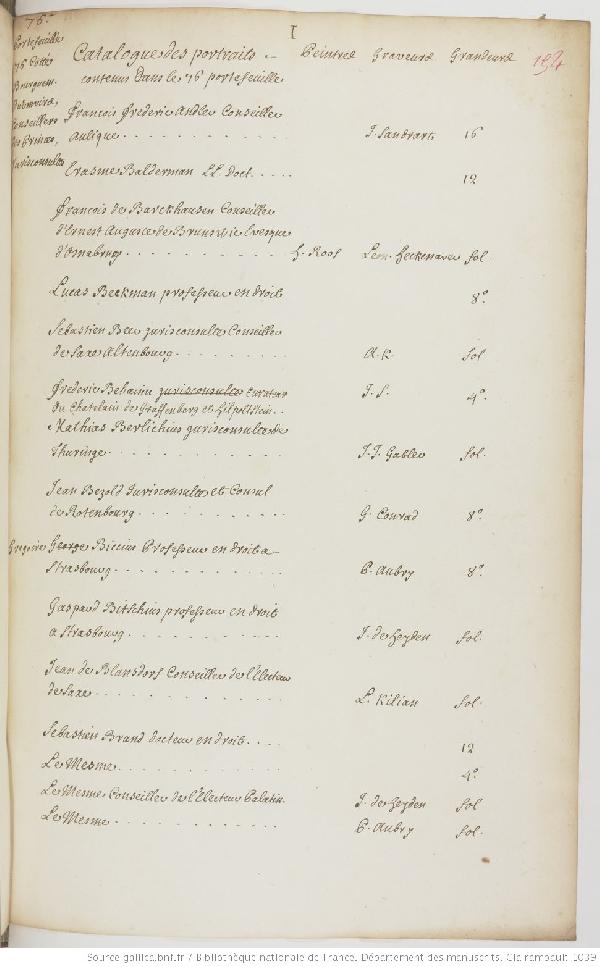 76.e
I
Portefeuille
76 Cotté
Bourguem.
Conseillers
Jurisconsultes
Catalogue des portraits Peintres Graveurs Grandeurs 154
contenus dans le 76 portefeuille
François frederic Andler Conseiller
Aulique . . . . . . . . . . J. Sandrart 16
Erasme Balderman LL. Doct. . . . . 12
François de Barckhausen Conseiller
d'Ernest Auguste de Brunswic Evesque
d'Osnabrug . . . . . . . . . . H. Roos Lem. Heckenauer fol.
Lucas Beckman professeur en droit 8.o
Sebastien Bew jurisconsulte Conseiller
de Saxe Altenbourg . . . . . . . . A. K. fol
frederic Behaim jurisconsulte Curateur J. S. 4.o
du Chatelain de Graffenberg et Hilpoltstein . .
Mathias Berlichius jurisconsulte de
Thuringe . . . . . . . . . . J. J. Gabler fol.
Jean Bezold Jurisconsulte et Consul
de Rotenbourg . . . . . . . . . G. Conrad 8.o
Gregoire George Biccius Professeur en droit a
Strasbourg . . . . . . . . . . P. Aubry 8.o
Gaspard Bitschius professeur en droit
a Strasbourg . . . . . . . . . J. de Heyden fol.
Jean de Blansdorf Conseiller de l'Electeur
de Saxe . . . . . . . . . . . L. Kilian fol.
Sebastien Brand docteur en droit . . . . 12
Le Mesme . . . . . . . . . . 4.o
Le Mesme Conseiller de l'Electeur Palatin. J. de Heyden fol
Le Mesme . . . . . . . . . . P. Aubry fol.
Source gallica.bnf.fr / Bibliothèque nationale de France. Département des manuscrits. Clairambault 1039